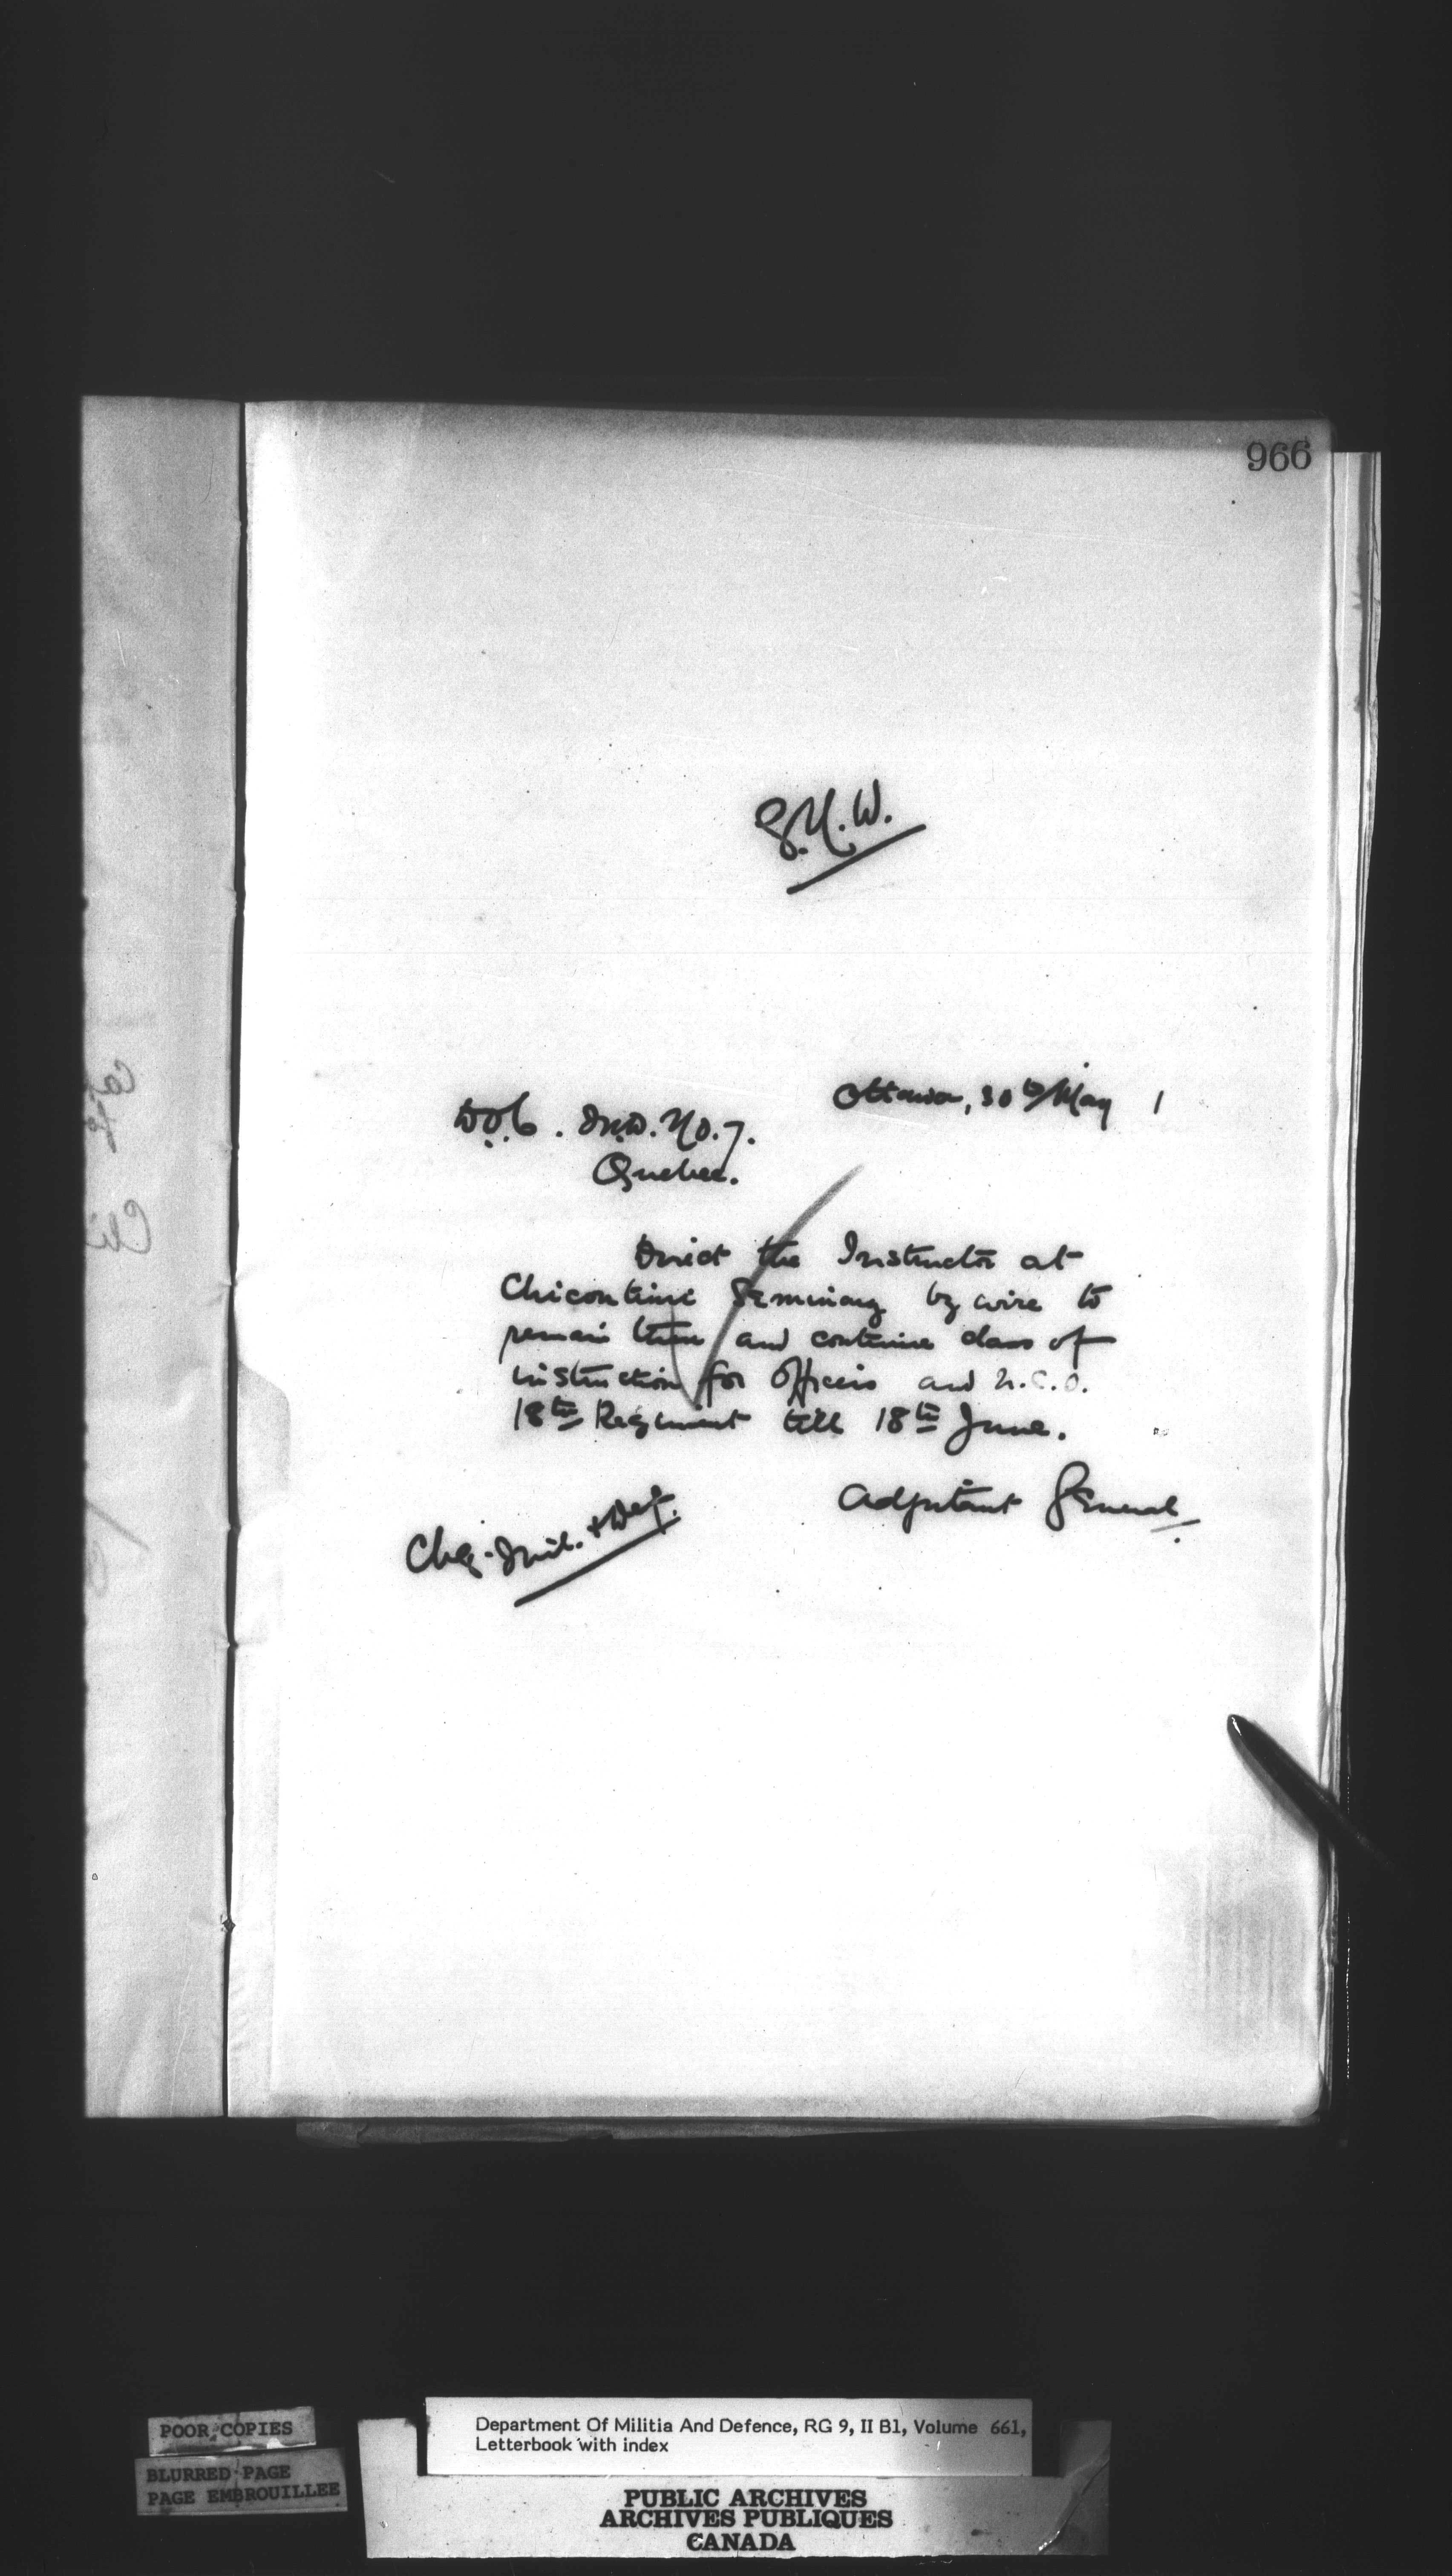 966
G.N.W.
Ottawa, 30th/May 1
D.O.C. M.D. No. 7.
Quebec.
Direct the Instructor at
Chicoutimi Seminary by wire to
remain there and continue class of
instruction for Officers and N.C.O.
18th Regiment till 18th June.
Adjutant General.
Chg. Mil. & Def.
POOR COPIES
BLURRED PAGE
PAGE EMBROUILLEE
Department Of Militia And Defence, RG 9, II B1, Volume 661,
Letterbook with index
PUBLIC ARCHIVES
ARCHIVES PUBLIQUES
CANADA